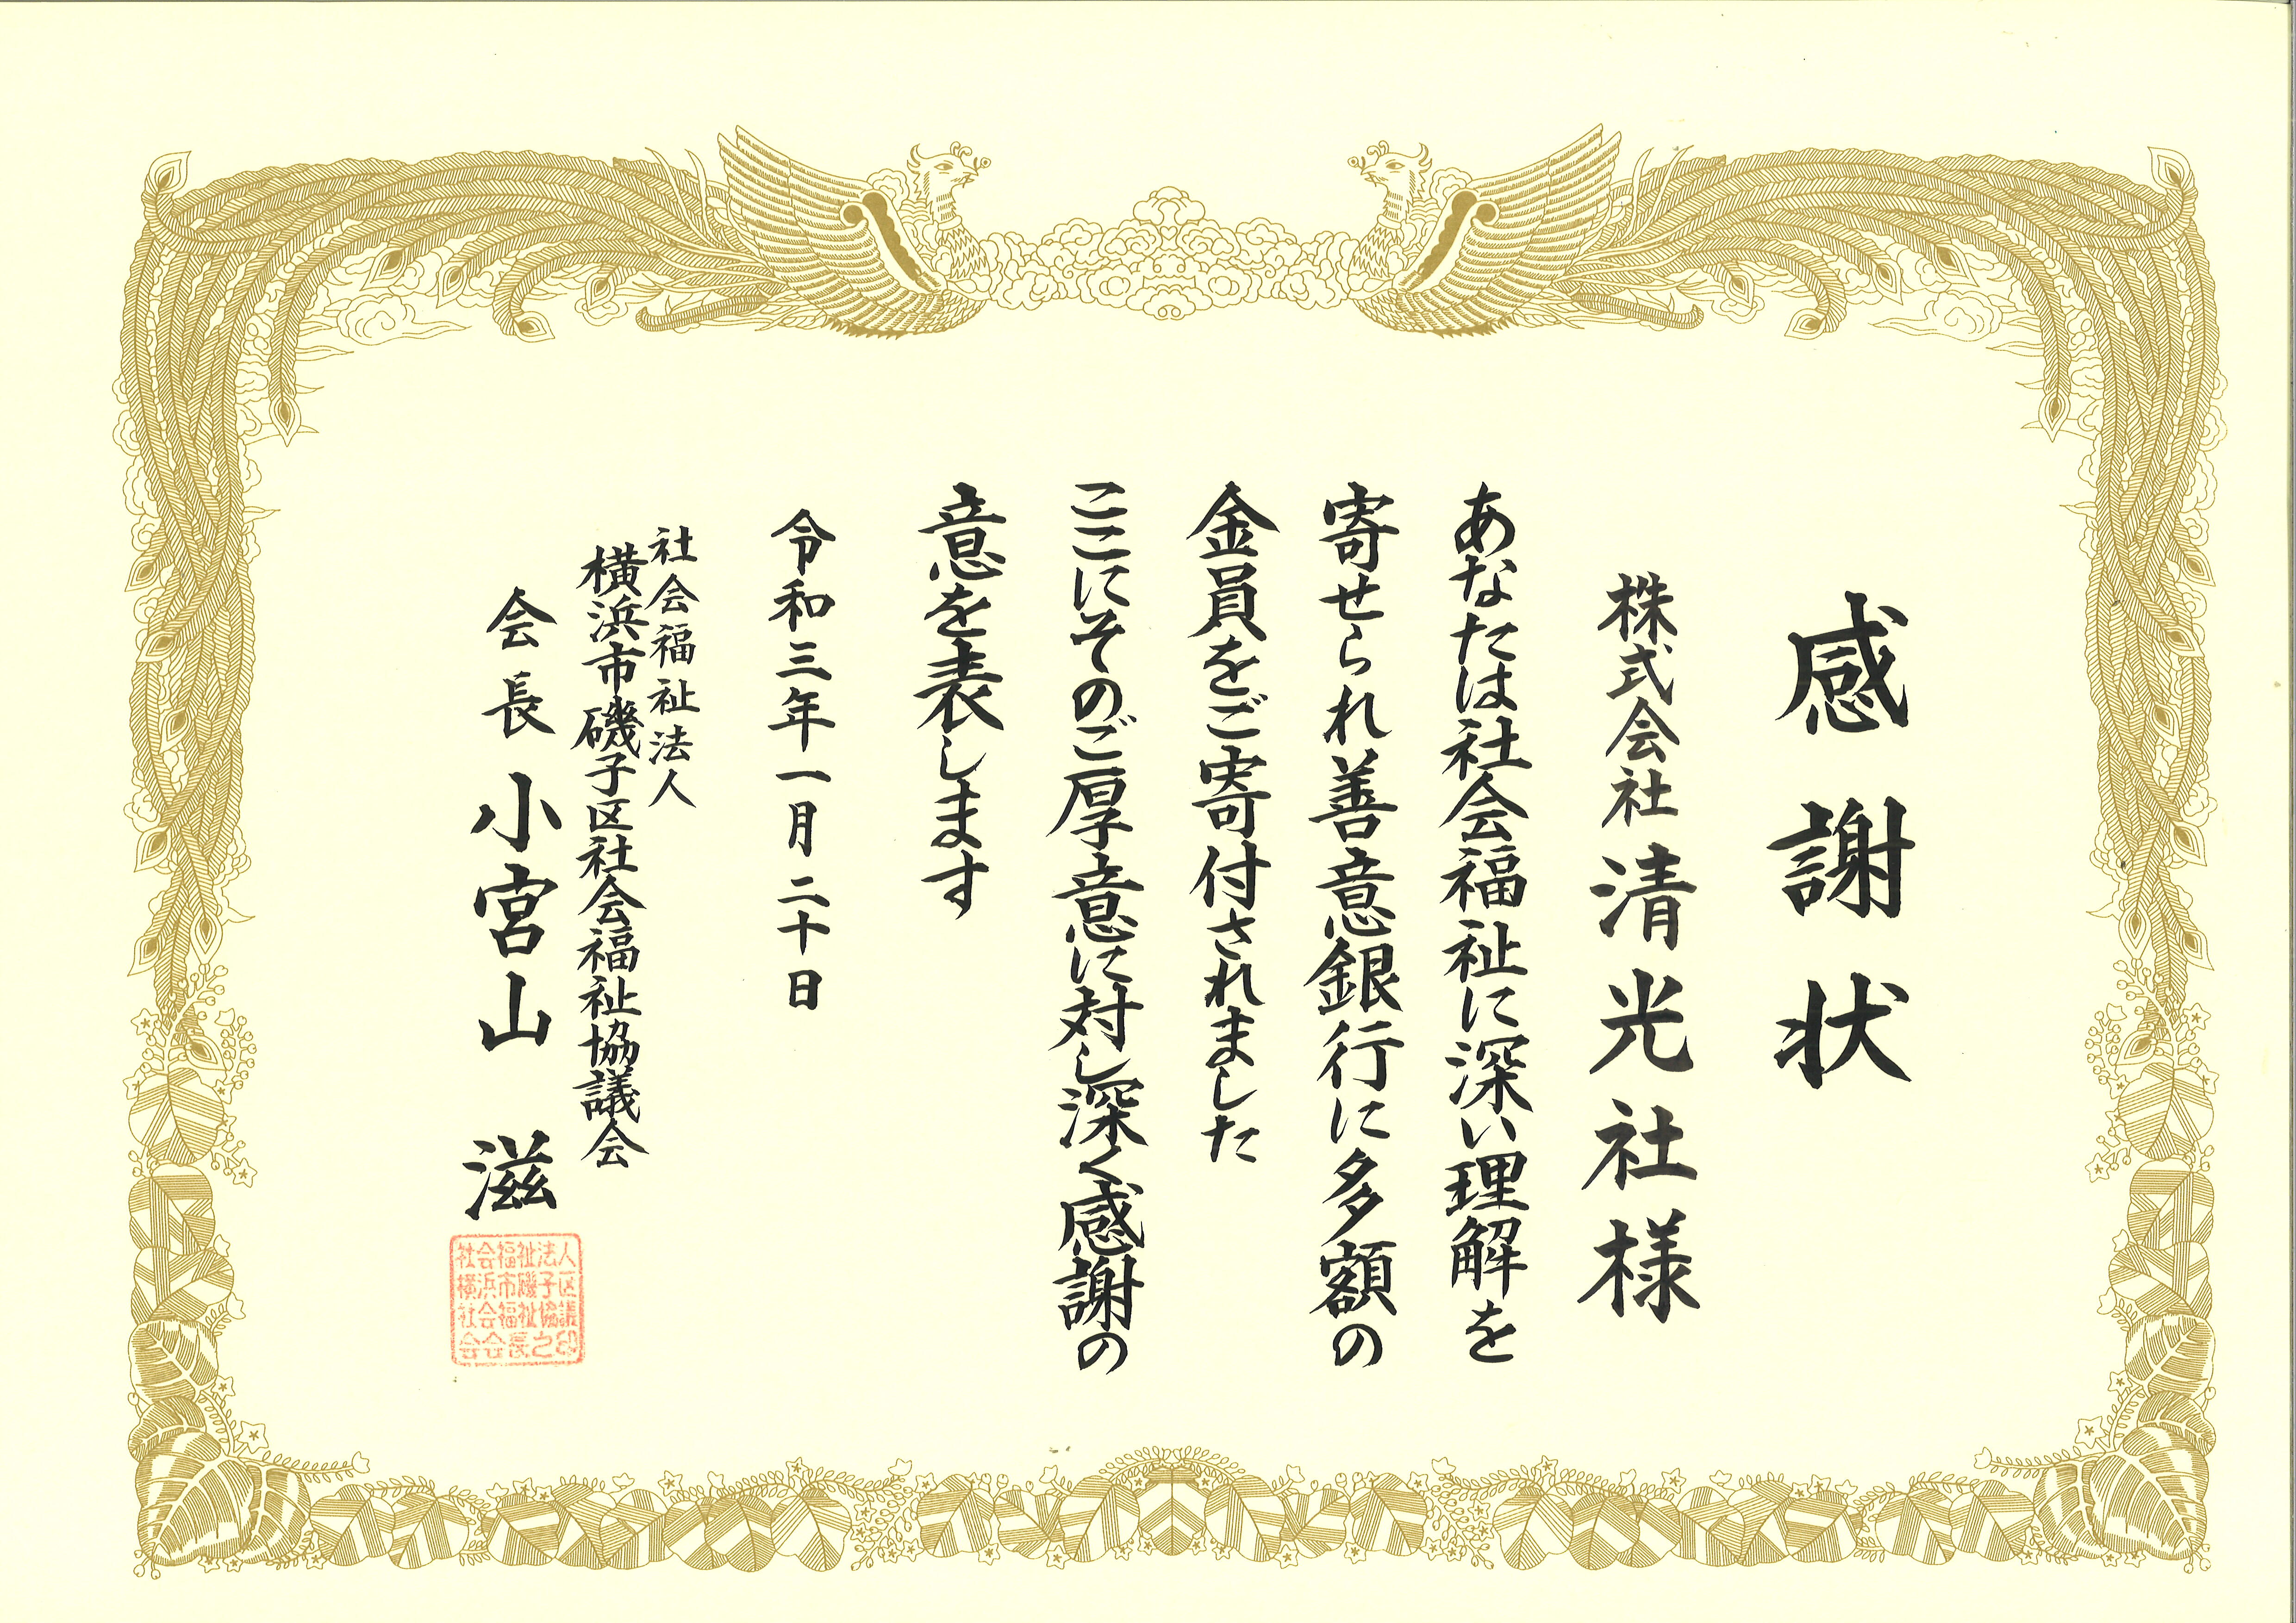 感謝状
株式会社清光社様
あなたは社会福祉に深い理解を
寄せられ善意銀行に多額の
金員をご寄付されました
ここにそのご厚意に対し深く感謝の
意を表します
令和三年一月二十日
社会福祉法人
横浜市磯子区社会福祉協議会
会長 小宮山 滋
社会福祉法人
横浜市磯子区
社会福祉協議
会会長之印